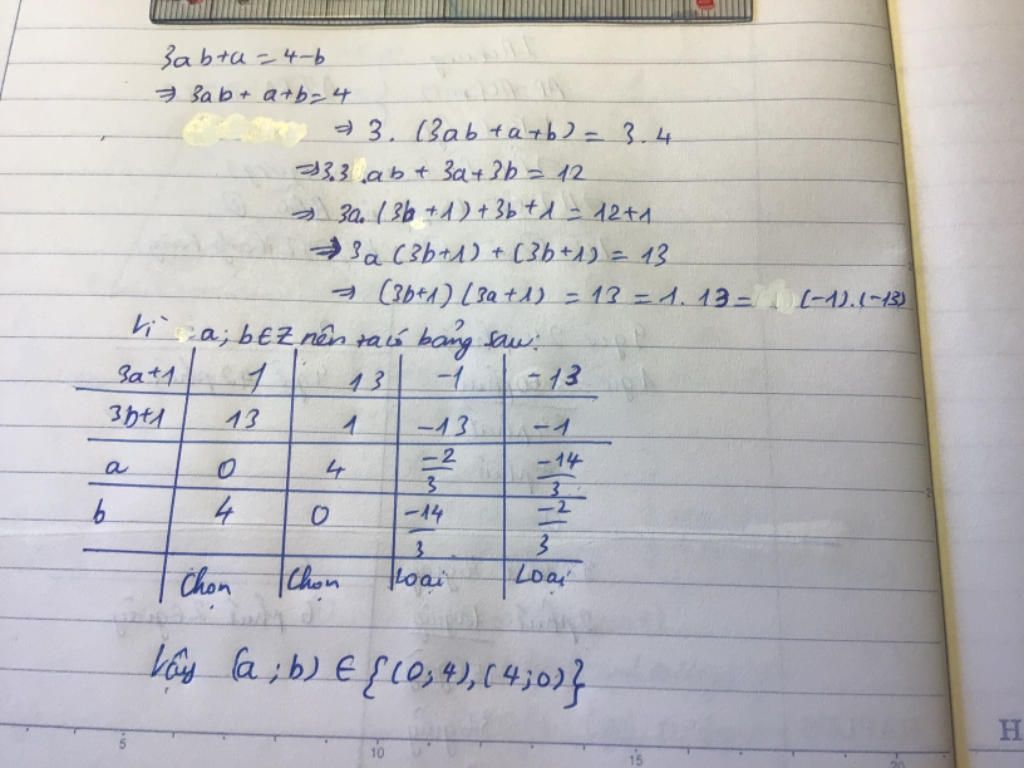 3ab+a = 4-b
⇒ 3ab + a+b=4
⇒ 3. (3ab +a+b) = 3.4
⇒3.3.ab + 3a+3b = 12
⇒ 3a.(3b+1)+3b+1 = 12+1
⇒ 3a (3b+1) + (3b+1) = 13
⇒ (3b+1) (3a+1) = 13 = 1.13 = (-1).(-13)
Vì a; b∈Z nên ta có bảng sau:
3a+1 1 13 -1 -13
3b+1 13 1 -13 -1
a 0 4 -2/3 -14/3
b 4 0 -14/3 -2/3
Chọn Chọn Loại Loại
Vậy (a;b) ∈ {(0;4),(4;0)}
5 10 15 20
H